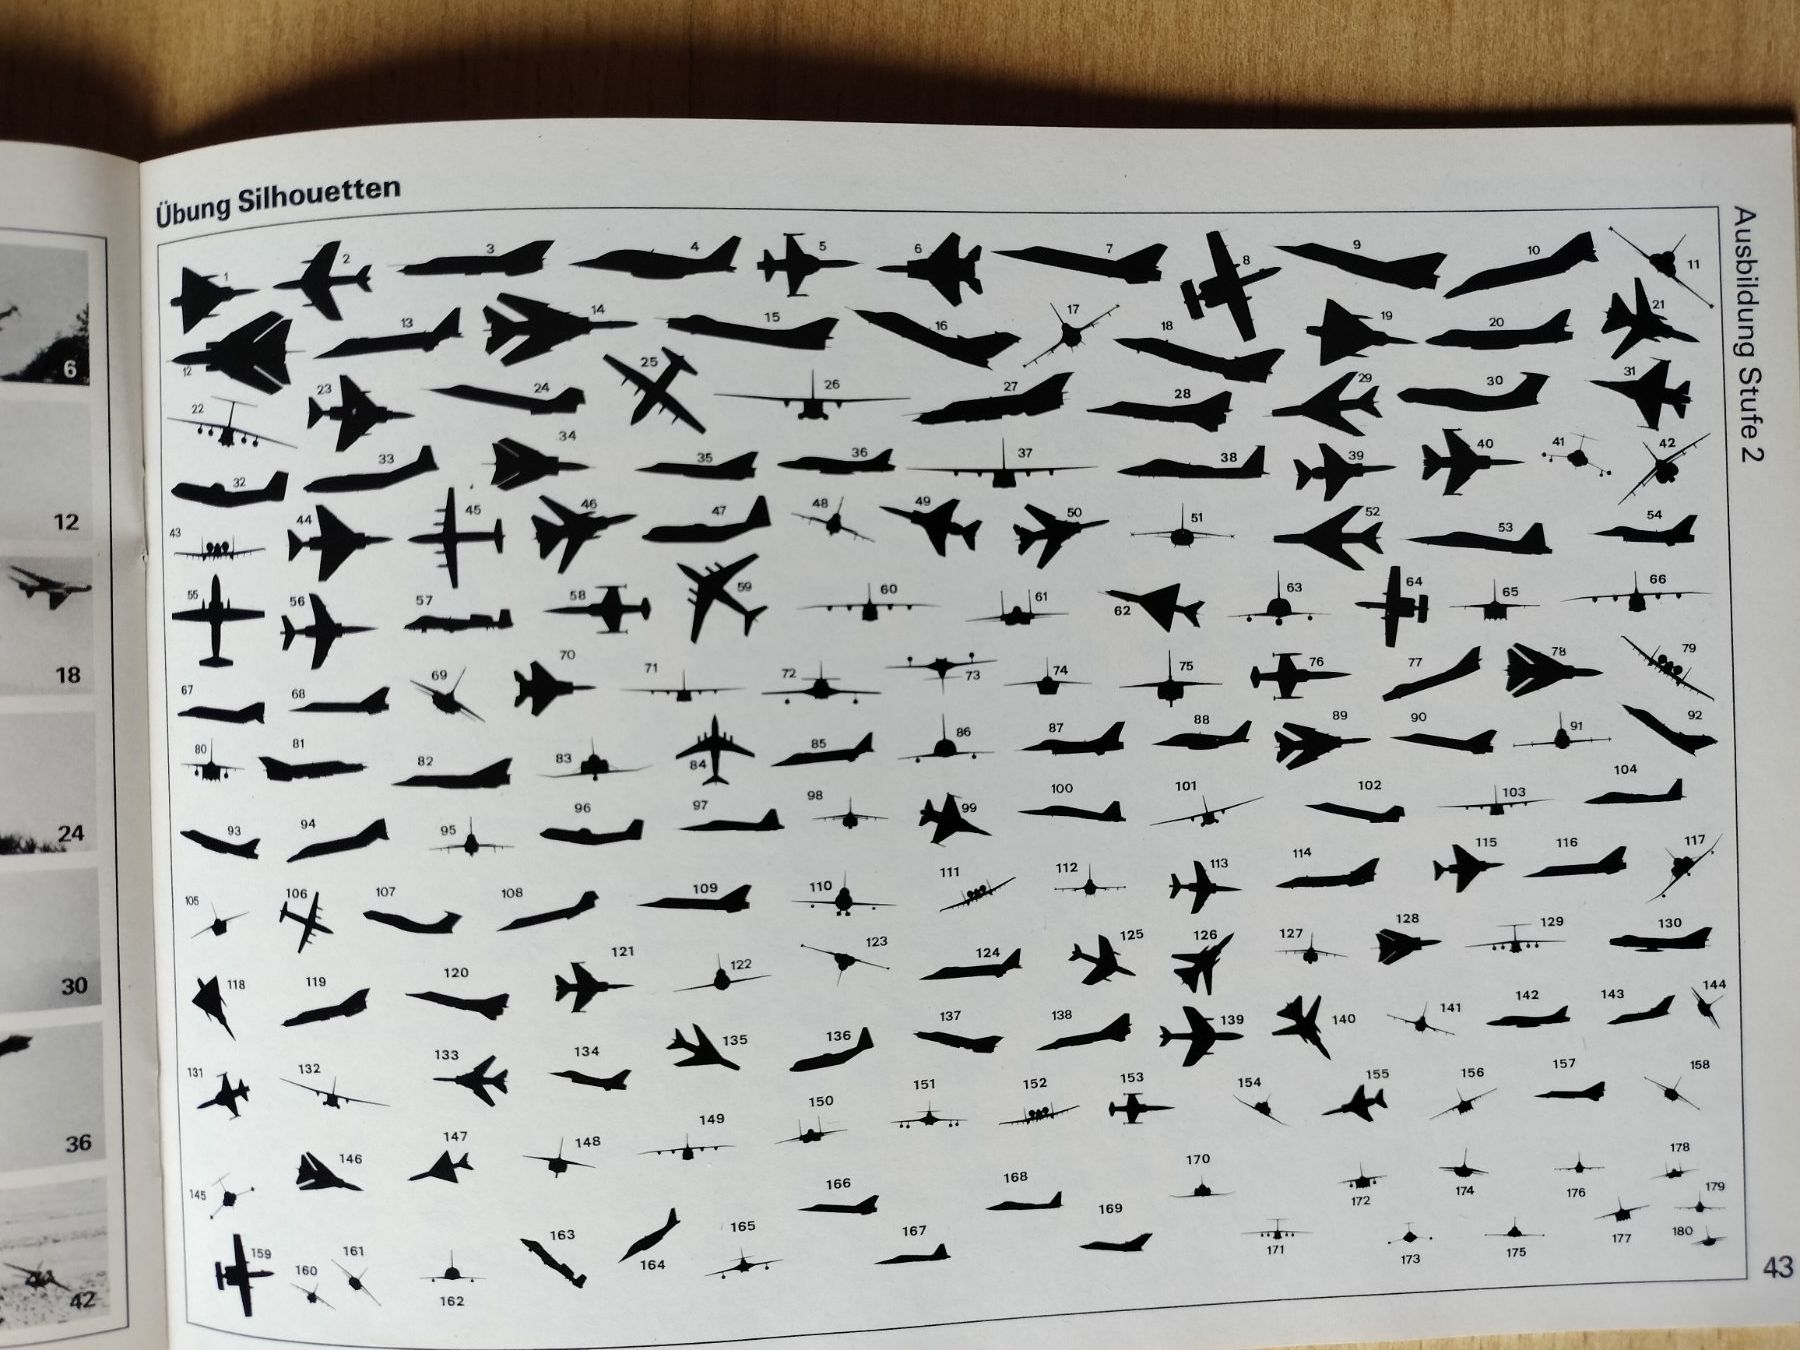 Übung Silhouetten
Ausbildung Stufe 2
6
12
18
24
30
36
42
1 2 3 4 5 6 7 8 9 10 11
12 13 14 15 16 17 18 19 20 21
22 23 24 25 26 27 28 29 30 31
32 33 34 35 36 37 38 39 40 41 42
43 44 45 46 47 48 49 50 51 52 53 54
55 56 57 58 59 60 61 62 63 64 65 66
67 68 69 70 71 72 73 74 75 76 77 78 79
80 81 82 83 84 85 86 87 88 89 90 91 92
93 94 95 96 97 98 99 100 101 102 103 104
105 106 107 108 109 110 111 112 113 114 115 116 117
118 119 120 121 122 123 124 125 126 127 128 129 130
131 132 133 134 135 136 137 138 139 140 141 142 143 144
145 146 147 148 149 150 151 152 153 154 155 156 157 158
159 160 161 162 163 164 165 166 167 168 169 170 171 172 173 174 175 176 177 178 179 180
43